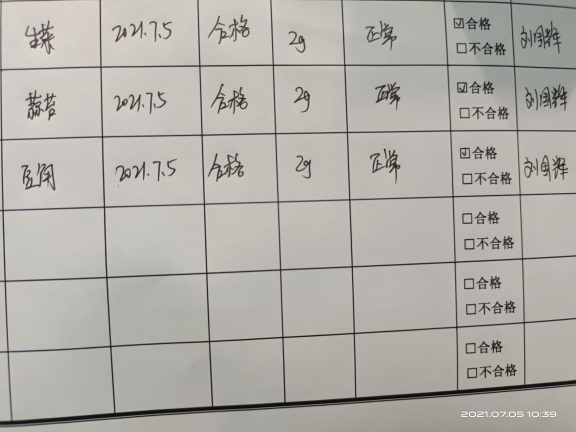 生菜 2021.7.5 合格 2g 正常 ☑合格 刘国辉
☐不合格
蒜苔 2021.7.5 合格 2g 正常 ☑合格 刘国辉
☐不合格
豆角 2021.7.5 合格 2g 正常 ☑合格 刘国辉
☐不合格
☐合格
☐不合格
☐合格
☐不合格
☐合格
☐不合格
2021.07.05 10:39